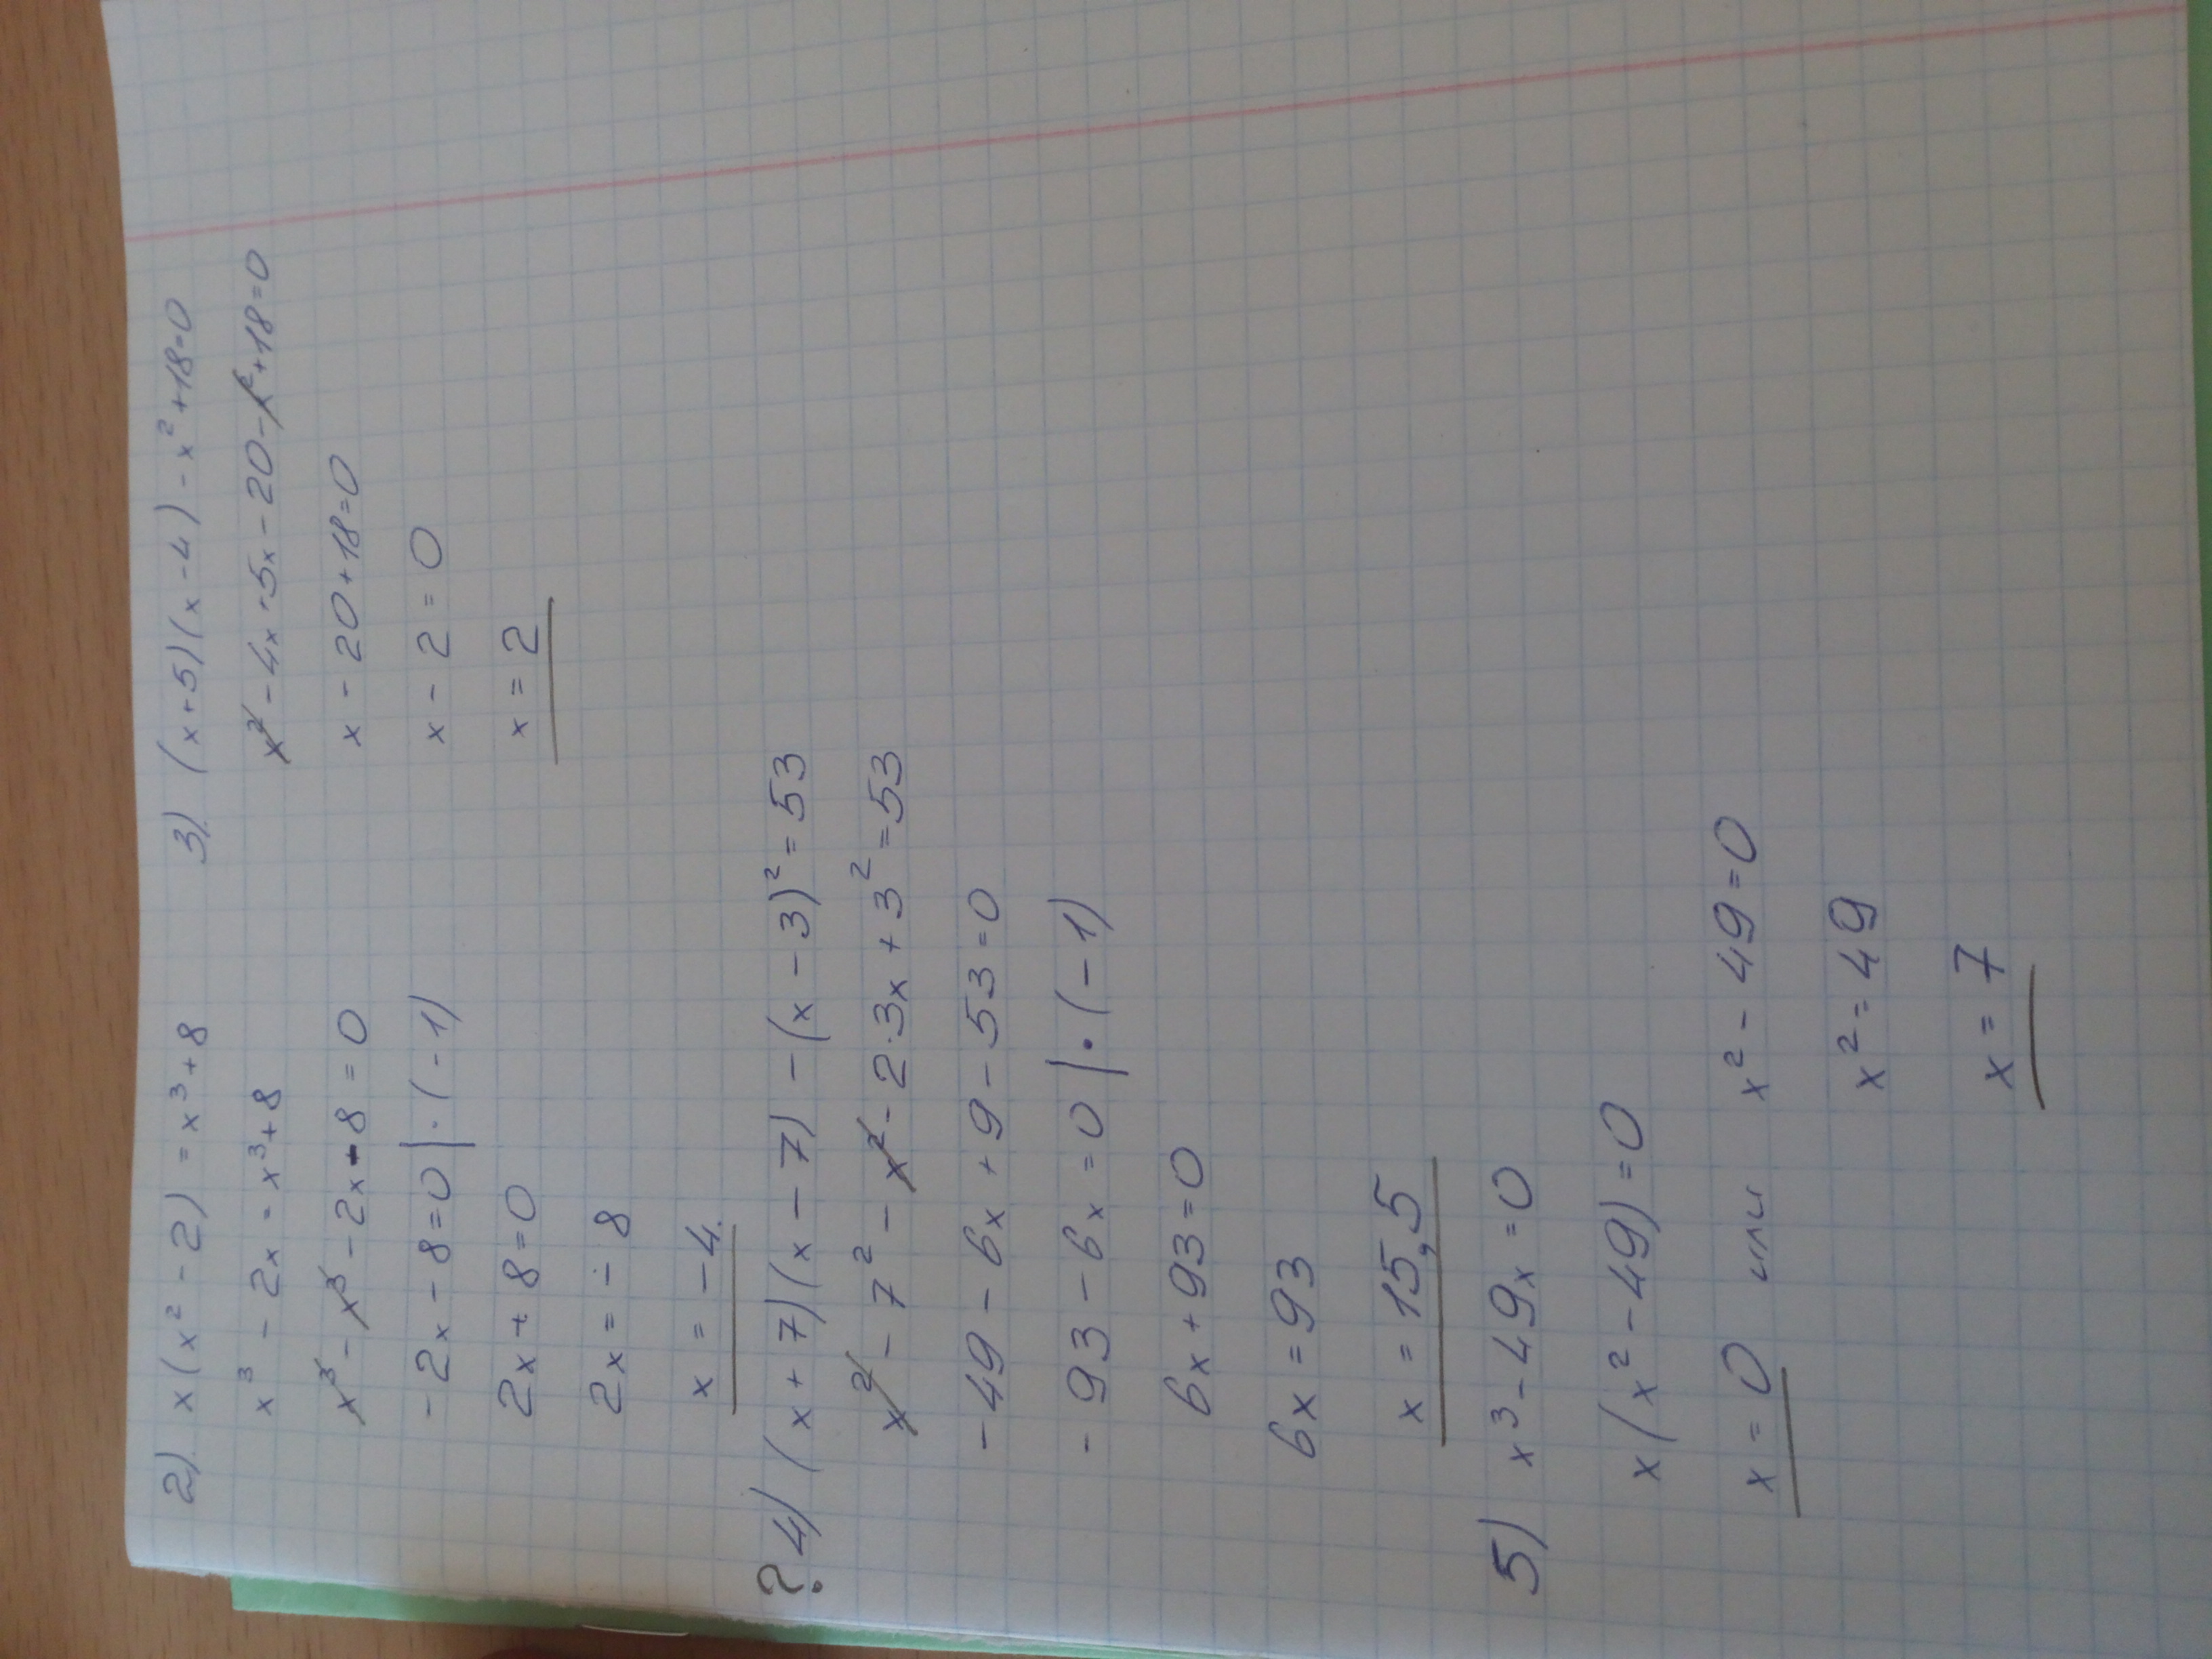 2) x(x² - 2) = x³ + 8
x³ - 2x = x³ + 8
x³ - x³ - 2x - 8 = 0
-2x - 8 = 0 | · (-1)
2x + 8 = 0
2x = - 8
x = -4.
3) (x + 5)(x - 4) - x² + 18 = 0
x² - 4x + 5x - 20 - x² + 18 = 0
x - 20 + 18 = 0
x - 2 = 0
x = 2
? 4) (x + 7)(x - 7) - (x - 3)² = 53
x² - 7² - x² - 2·3x + 3² = 53
-49 - 6x + 9 - 53 = 0
-93 - 6x = 0 | · (-1)
6x + 93 = 0
6x = 93
x = 15,5
5) x³ - 49x = 0
x(x² - 49) = 0
x = 0 или x² - 49 = 0
x² = 49
x = 7